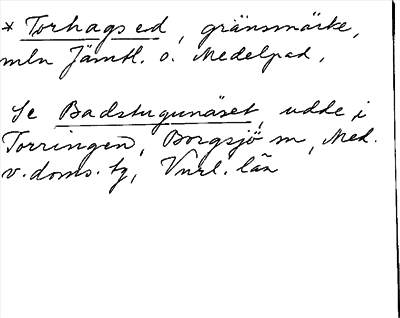 * Torhags ed, gränsmärke,
mln Jämtl. o. Medelpad,
Se Badstugunäset, udde i
Torringen, Borgsjö sn, Med.
v. doms. tg, Vnrl. län